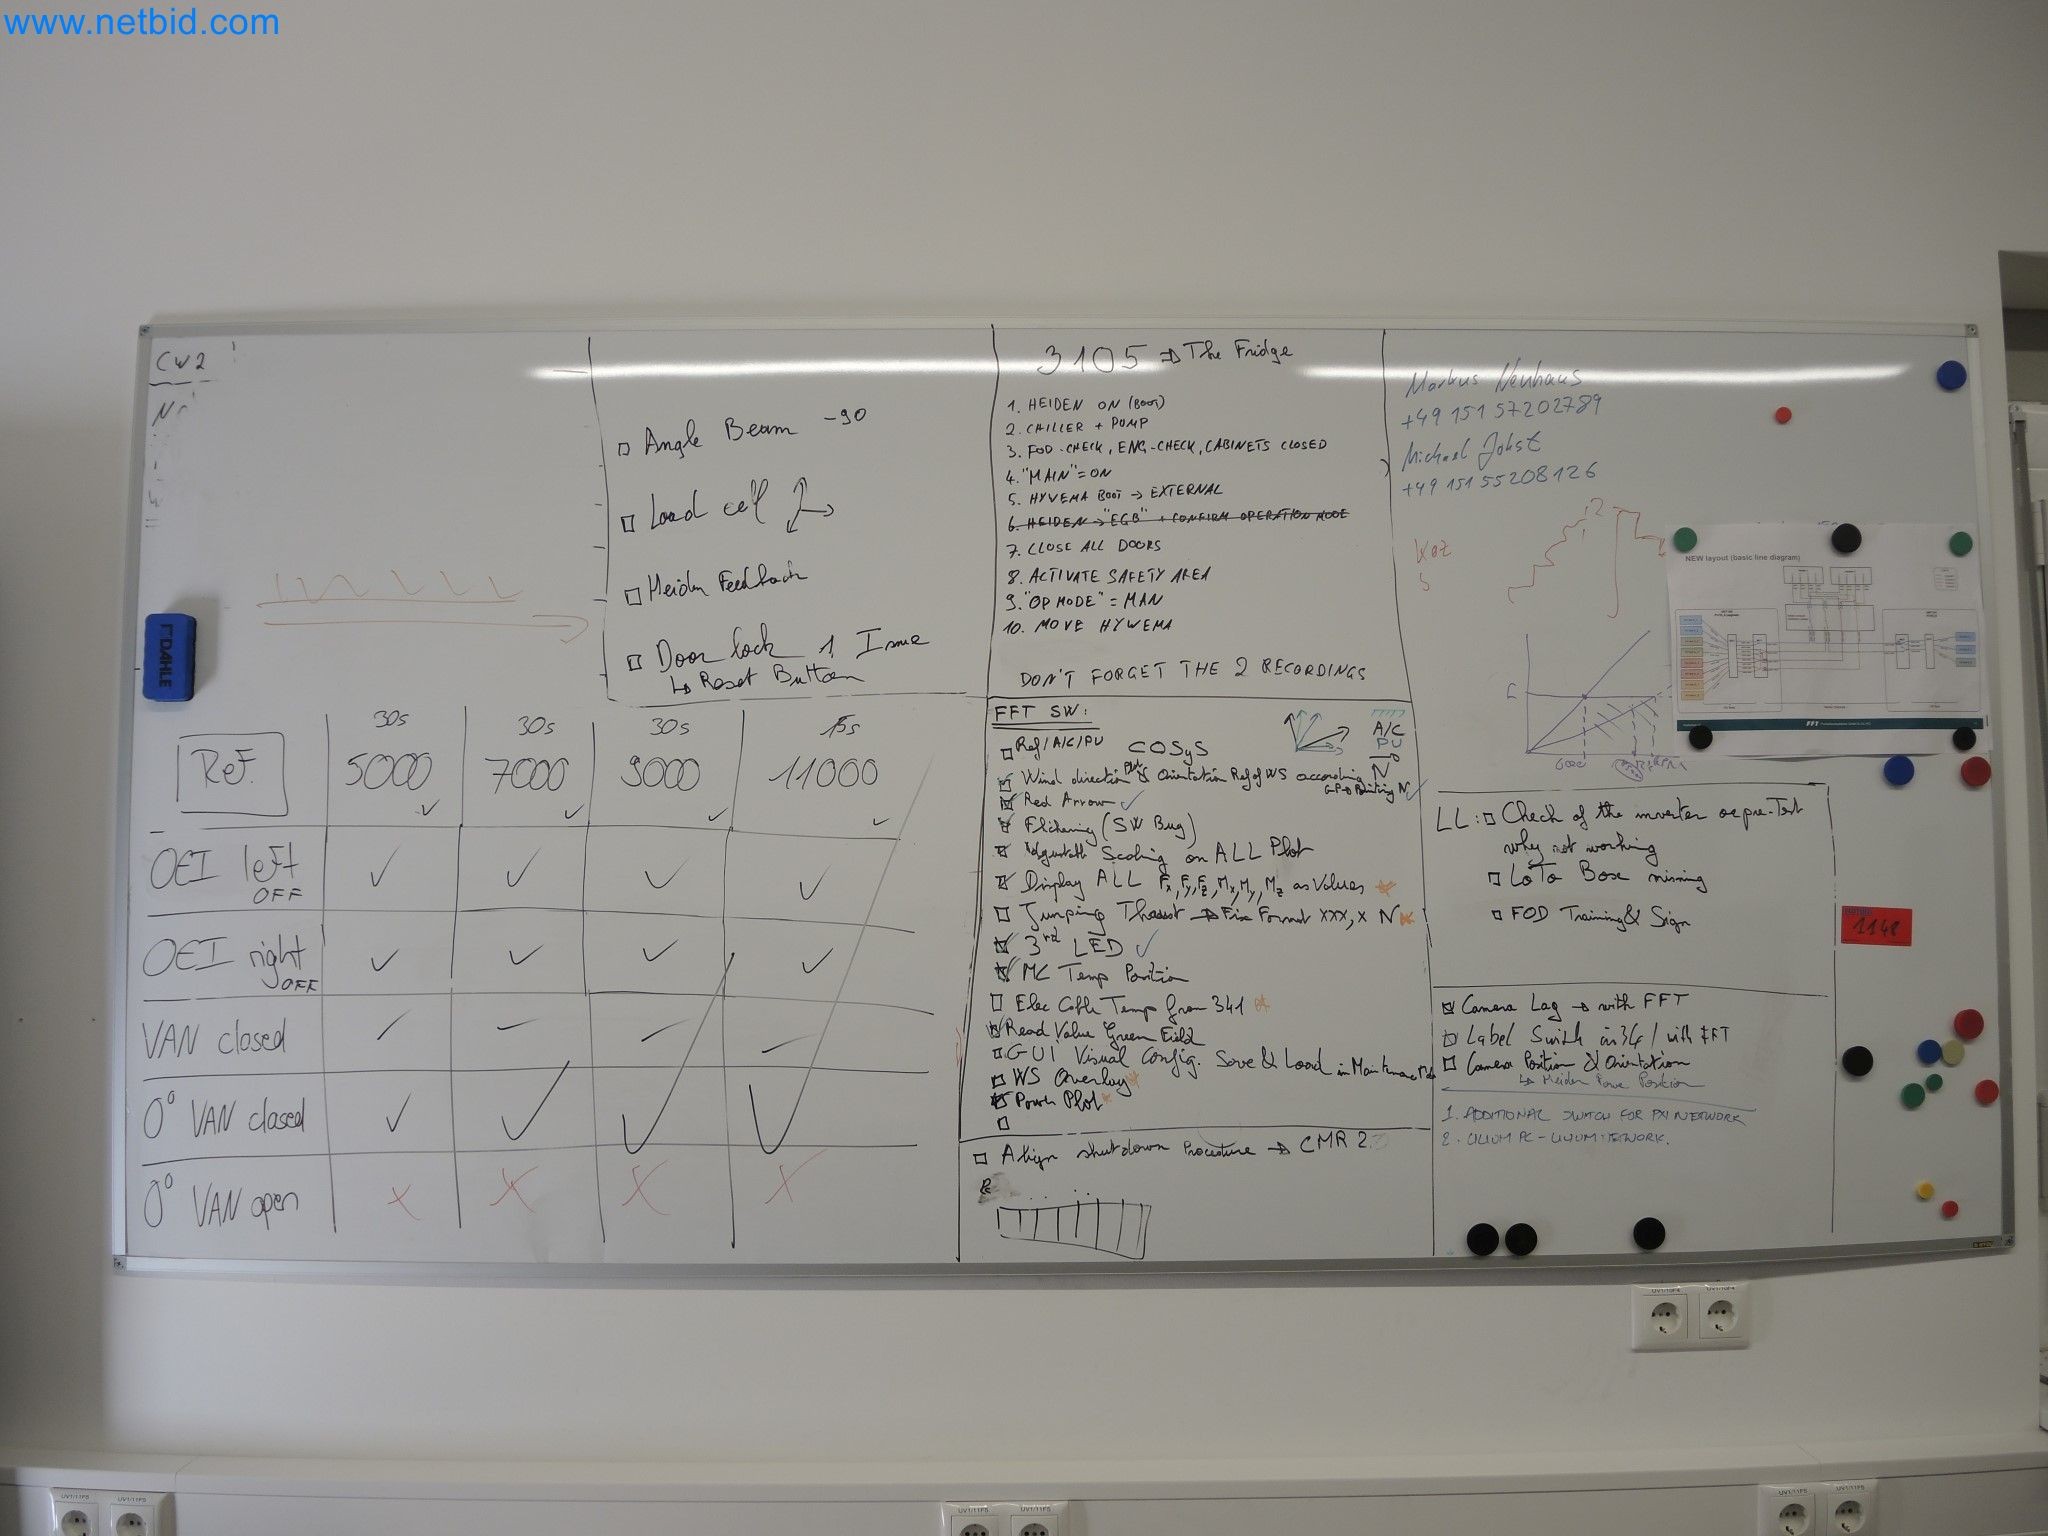 www.netbid.com
CW2
□ Angle Beam -90
□ Load cell
□ Heiden Feedback
□ Door lock 1 Issue
↳ Reset Button
DAHLE
30s 30s 30s 15s
Ref. 5000 7000 9000 11000
OEI left OFF
OEI right OFF
VAN closed
0° VAN closed
0° VAN open
3105 ⇒ The Fridge
1. HEIDEN ON (BOOT)
2. CHILLER + PUMP
3. FOD-CHECK, ENG-CHECK, CABINETS CLOSED
4. "MAIN" = ON
5. HYVEMA BOOT → EXTERNAL
6. HEIDEN → "EGB" + CONFIRM OPERATION MODE
7. CLOSE ALL DOORS
8. ACTIVATE SAFETY AREA
9. "OP MODE" = MAN
10. MOVE HYWEMA
DON'T FORGET THE 2 RECORDINGS
FFT SW:
Ref/A/C/PU COSyS
A/C
PU
N
Wind direction Plot & Orientation Ref of WS according
GP → Pointing N
Red Arrow
Flickering (SW Bug)
Adjustable Scaling on ALL Plot
Display ALL Fx, Fy, Fz, Mx, My, Mz as Values
Jumping Thrust → Fix Format XXX,X N
3rd LED
MC Temp Position
Elec Cable Temp from 341
Read Value Green Field
GUI Visual Config. Save & Load in Maintenance
WS Overlay
Power Plot
Align shutdown Procedure → CMR 2.
Markus Neuhaus
+49 151 57202789
Michael Jobst
+49 151 55208126
NEW layout (basic line diagram)
FFT
LL: □ Check of the inverter pre-Test
why not working
□ LoTo Box missing
□ FOD Training & Sign
1148
Camera Lag → with FFT
Label Switch in 341 with FFT
Camera Position & Orientation
↳ Heiden Position
1. ADDITIONAL SWITCH FOR PXI NETWORK
UV1/10F4 UV1/10F4
UV1/11F5 UV1/11F5
UV1/11F5 UV1/11F5
UV1/11F5 UV1/11F5